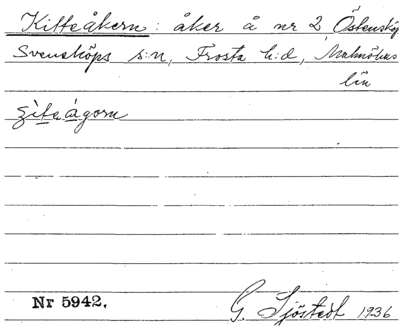 Kitteåkern: åker å nr 2 Östensköp
Svensköps s:n, Frosta h:d, Malmöhus
län
Nr 5942.
G. Sjöstedt 1936